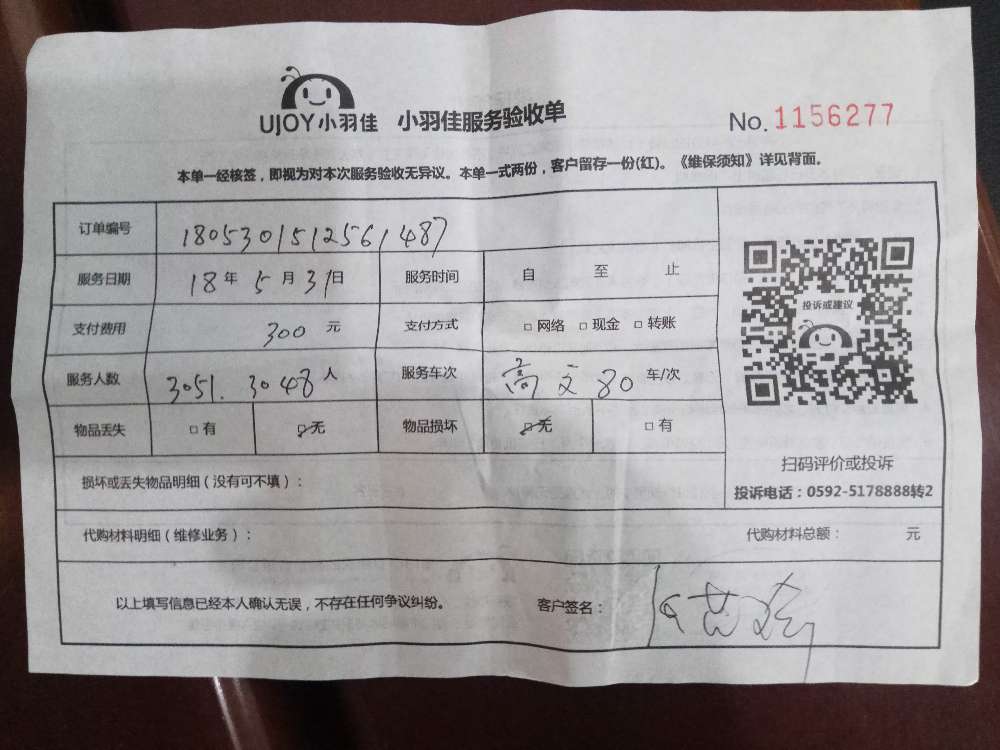 UJOY小羽佳 小羽佳服务验收单 No. 1156277
本单一经核签，即视为对本次服务验收无异议。本单一式两份，客户留存一份(红)。《维保须知》详见背面。
订单编号 1805301512561487
服务日期 18年 5月31日 服务时间 自 至 止
支付费用 300 元 支付方式 □网络 □现金 □转账
服务人数 3051. 3048人 服务车次 80 车/次
物品丢失 □有 □无 物品损坏 □无 □有
投诉或建议
扫码评价或投诉
投诉电话：0592-5178888转2
损坏或丢失物品明细（没有可不填）：
代购材料明细（维修业务）： 代购材料总额： 元
以上填写信息已经本人确认无误，不存在任何争议纠纷。 客户签名：